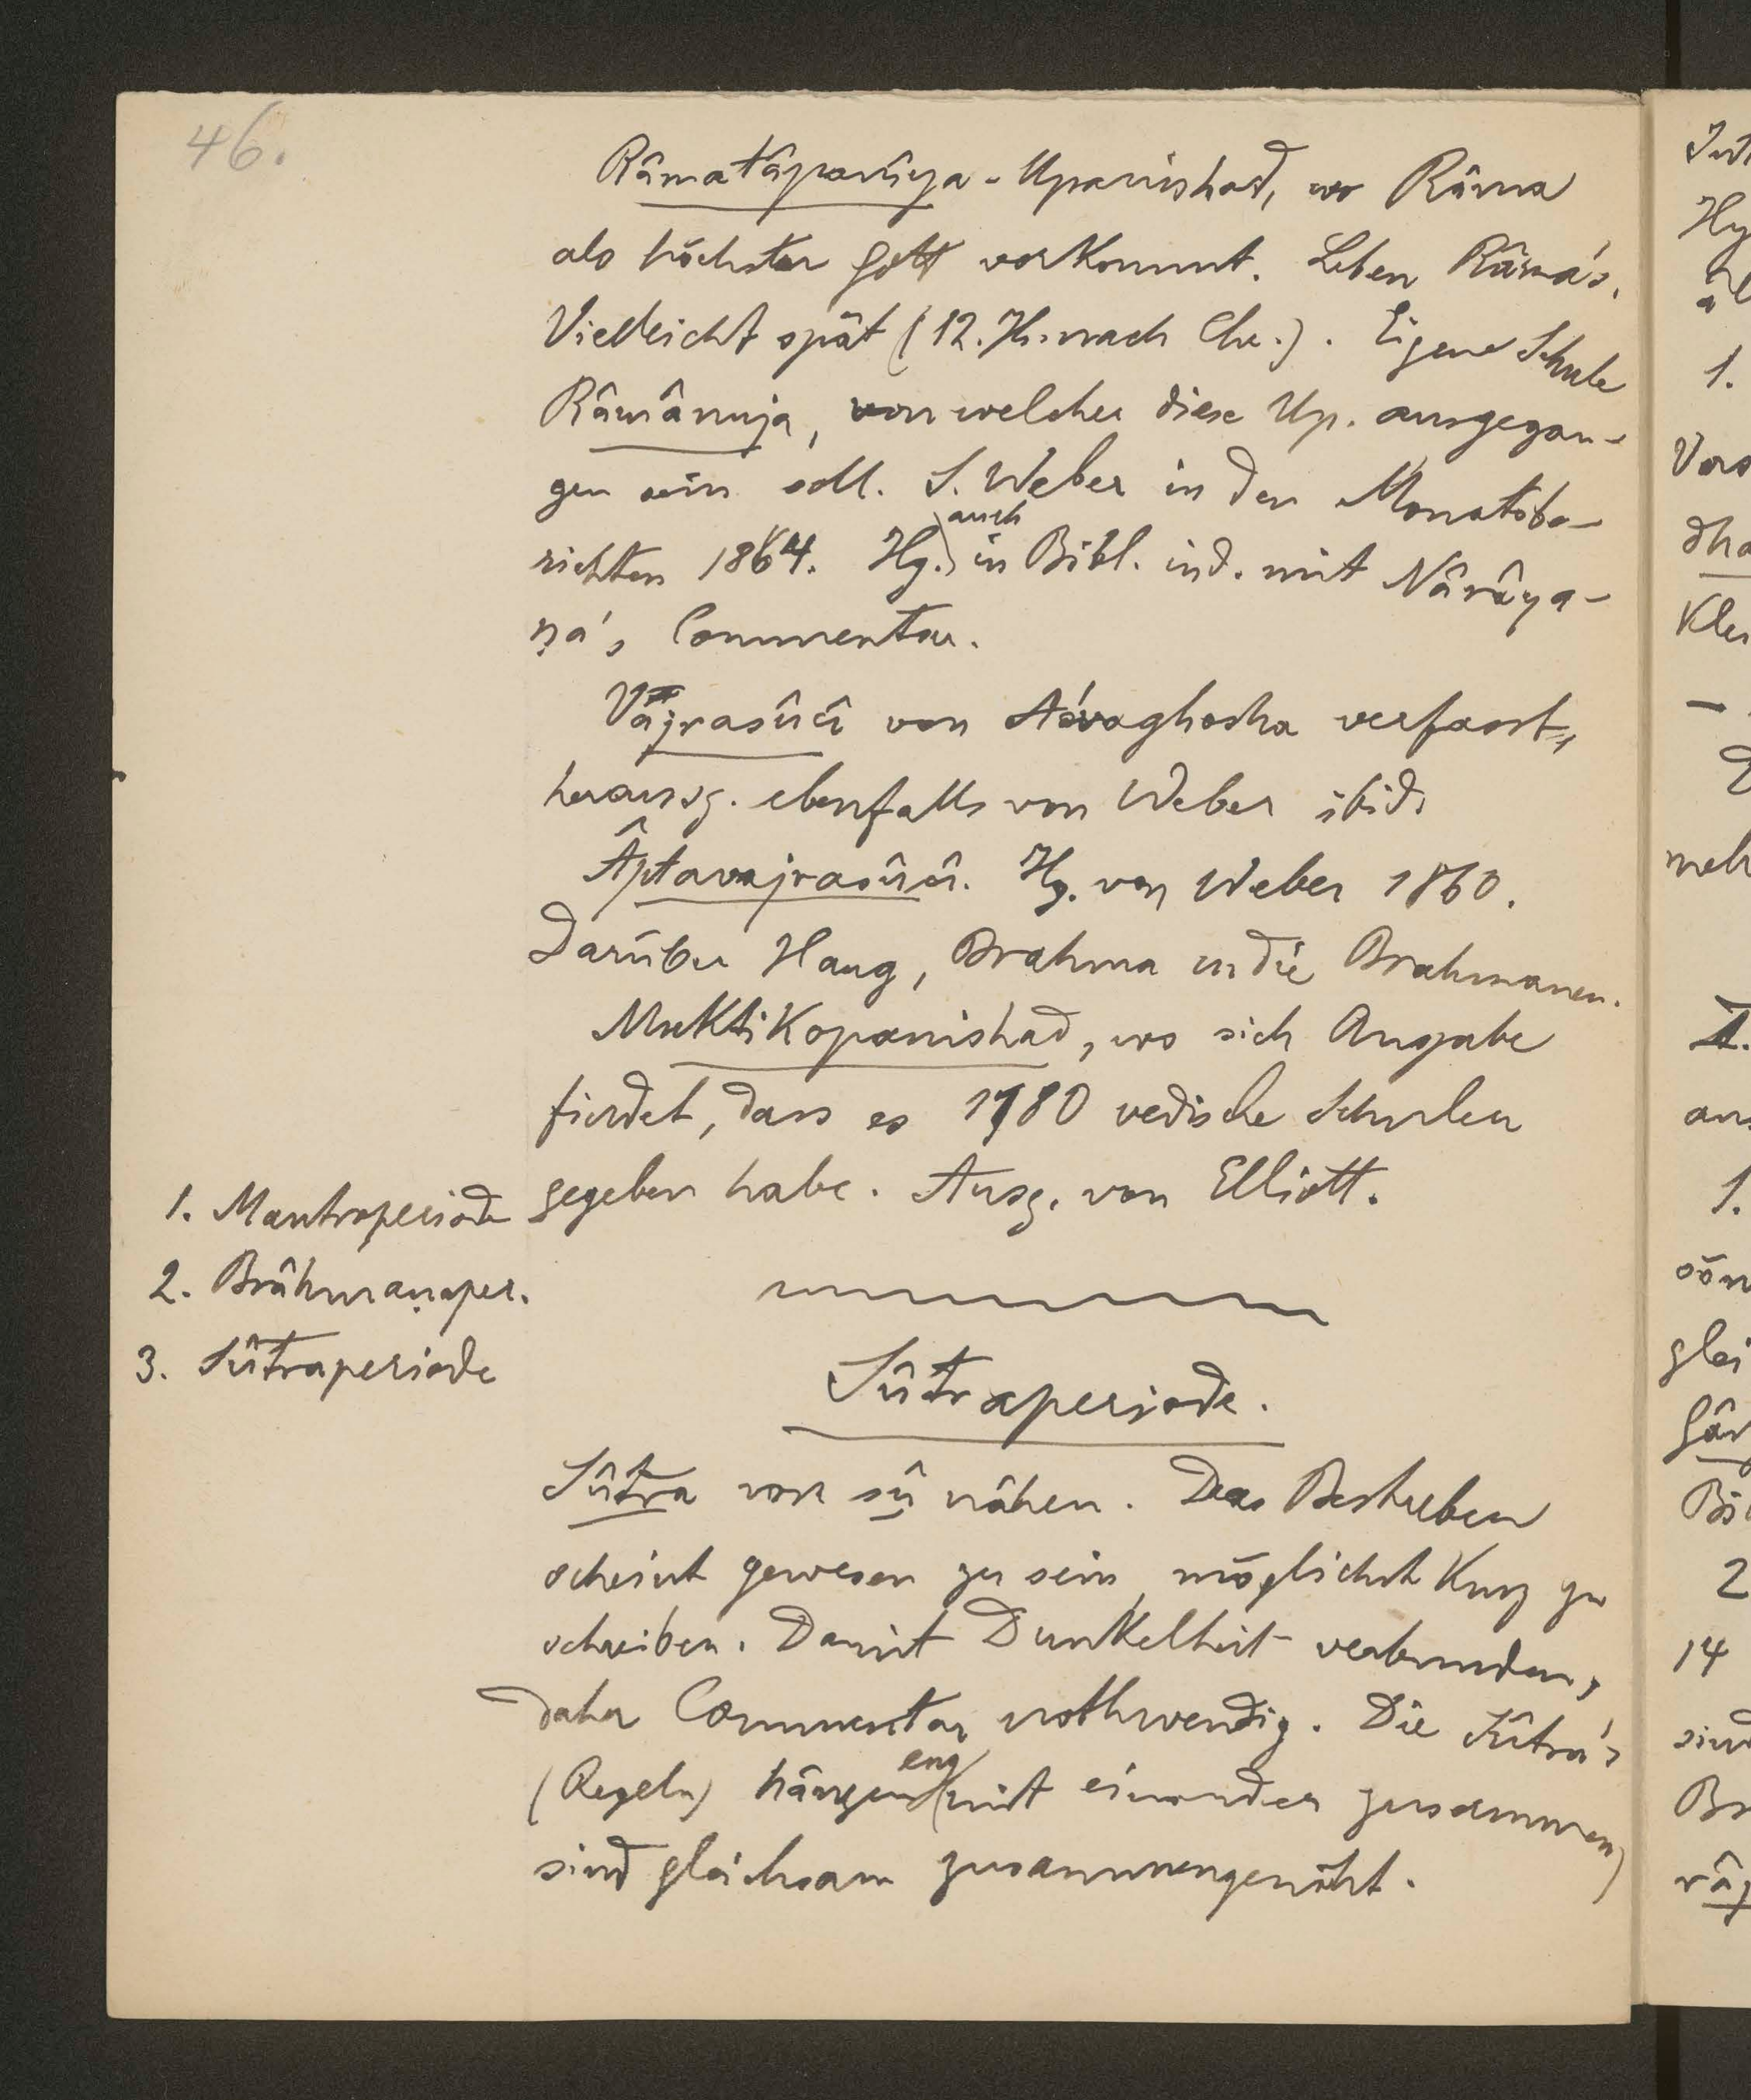 46.
Râmatâpanîya-Upanishad, wo Râma
als höchster Gott vorkommt. Leben Râma's.
Vielleicht spät (12. Jh. nach Chr.). Eigene Schule
Râmânuja, von welcher diese Up. ausgegan-
gen sein soll. S. Weber in den Monatsbe-
richten 1864. Hg. auch in Bibl. ind. mit Nârâya-
ṇa's Commentar.
Vajrasûcî von Aśvaghosha verfasst,
herausg. ebenfalls von Weber ibid.
Âptavajrasûcî. Hg. von Weber 1860.
Darüber Haug, Brahma u die Brahmanen.
Muktikopanishad, wo sich Angabe
findet, dass es 1180 vedische Schulen
gegeben habe. Ausg. von Elliott.
1. Mantraperiode
2. Brâhmaṇaper.
3. Sûtraperiode
Sûtraperiode.
Sûtra von sîv nähen. Das Bestreben
scheint gewesen zu sein möglichst kurz zu
schreiben. Damit Dunkelheit verbunden,
daher Commentar nothwendig. Die Sûtra's
(Regeln) hängen eng mit einander zusammen,
sind gleichsam zusammengenäht.
Hy
1.
Vors
dha
Kle
meh
1.
glei
2
14
sind
Br
râj